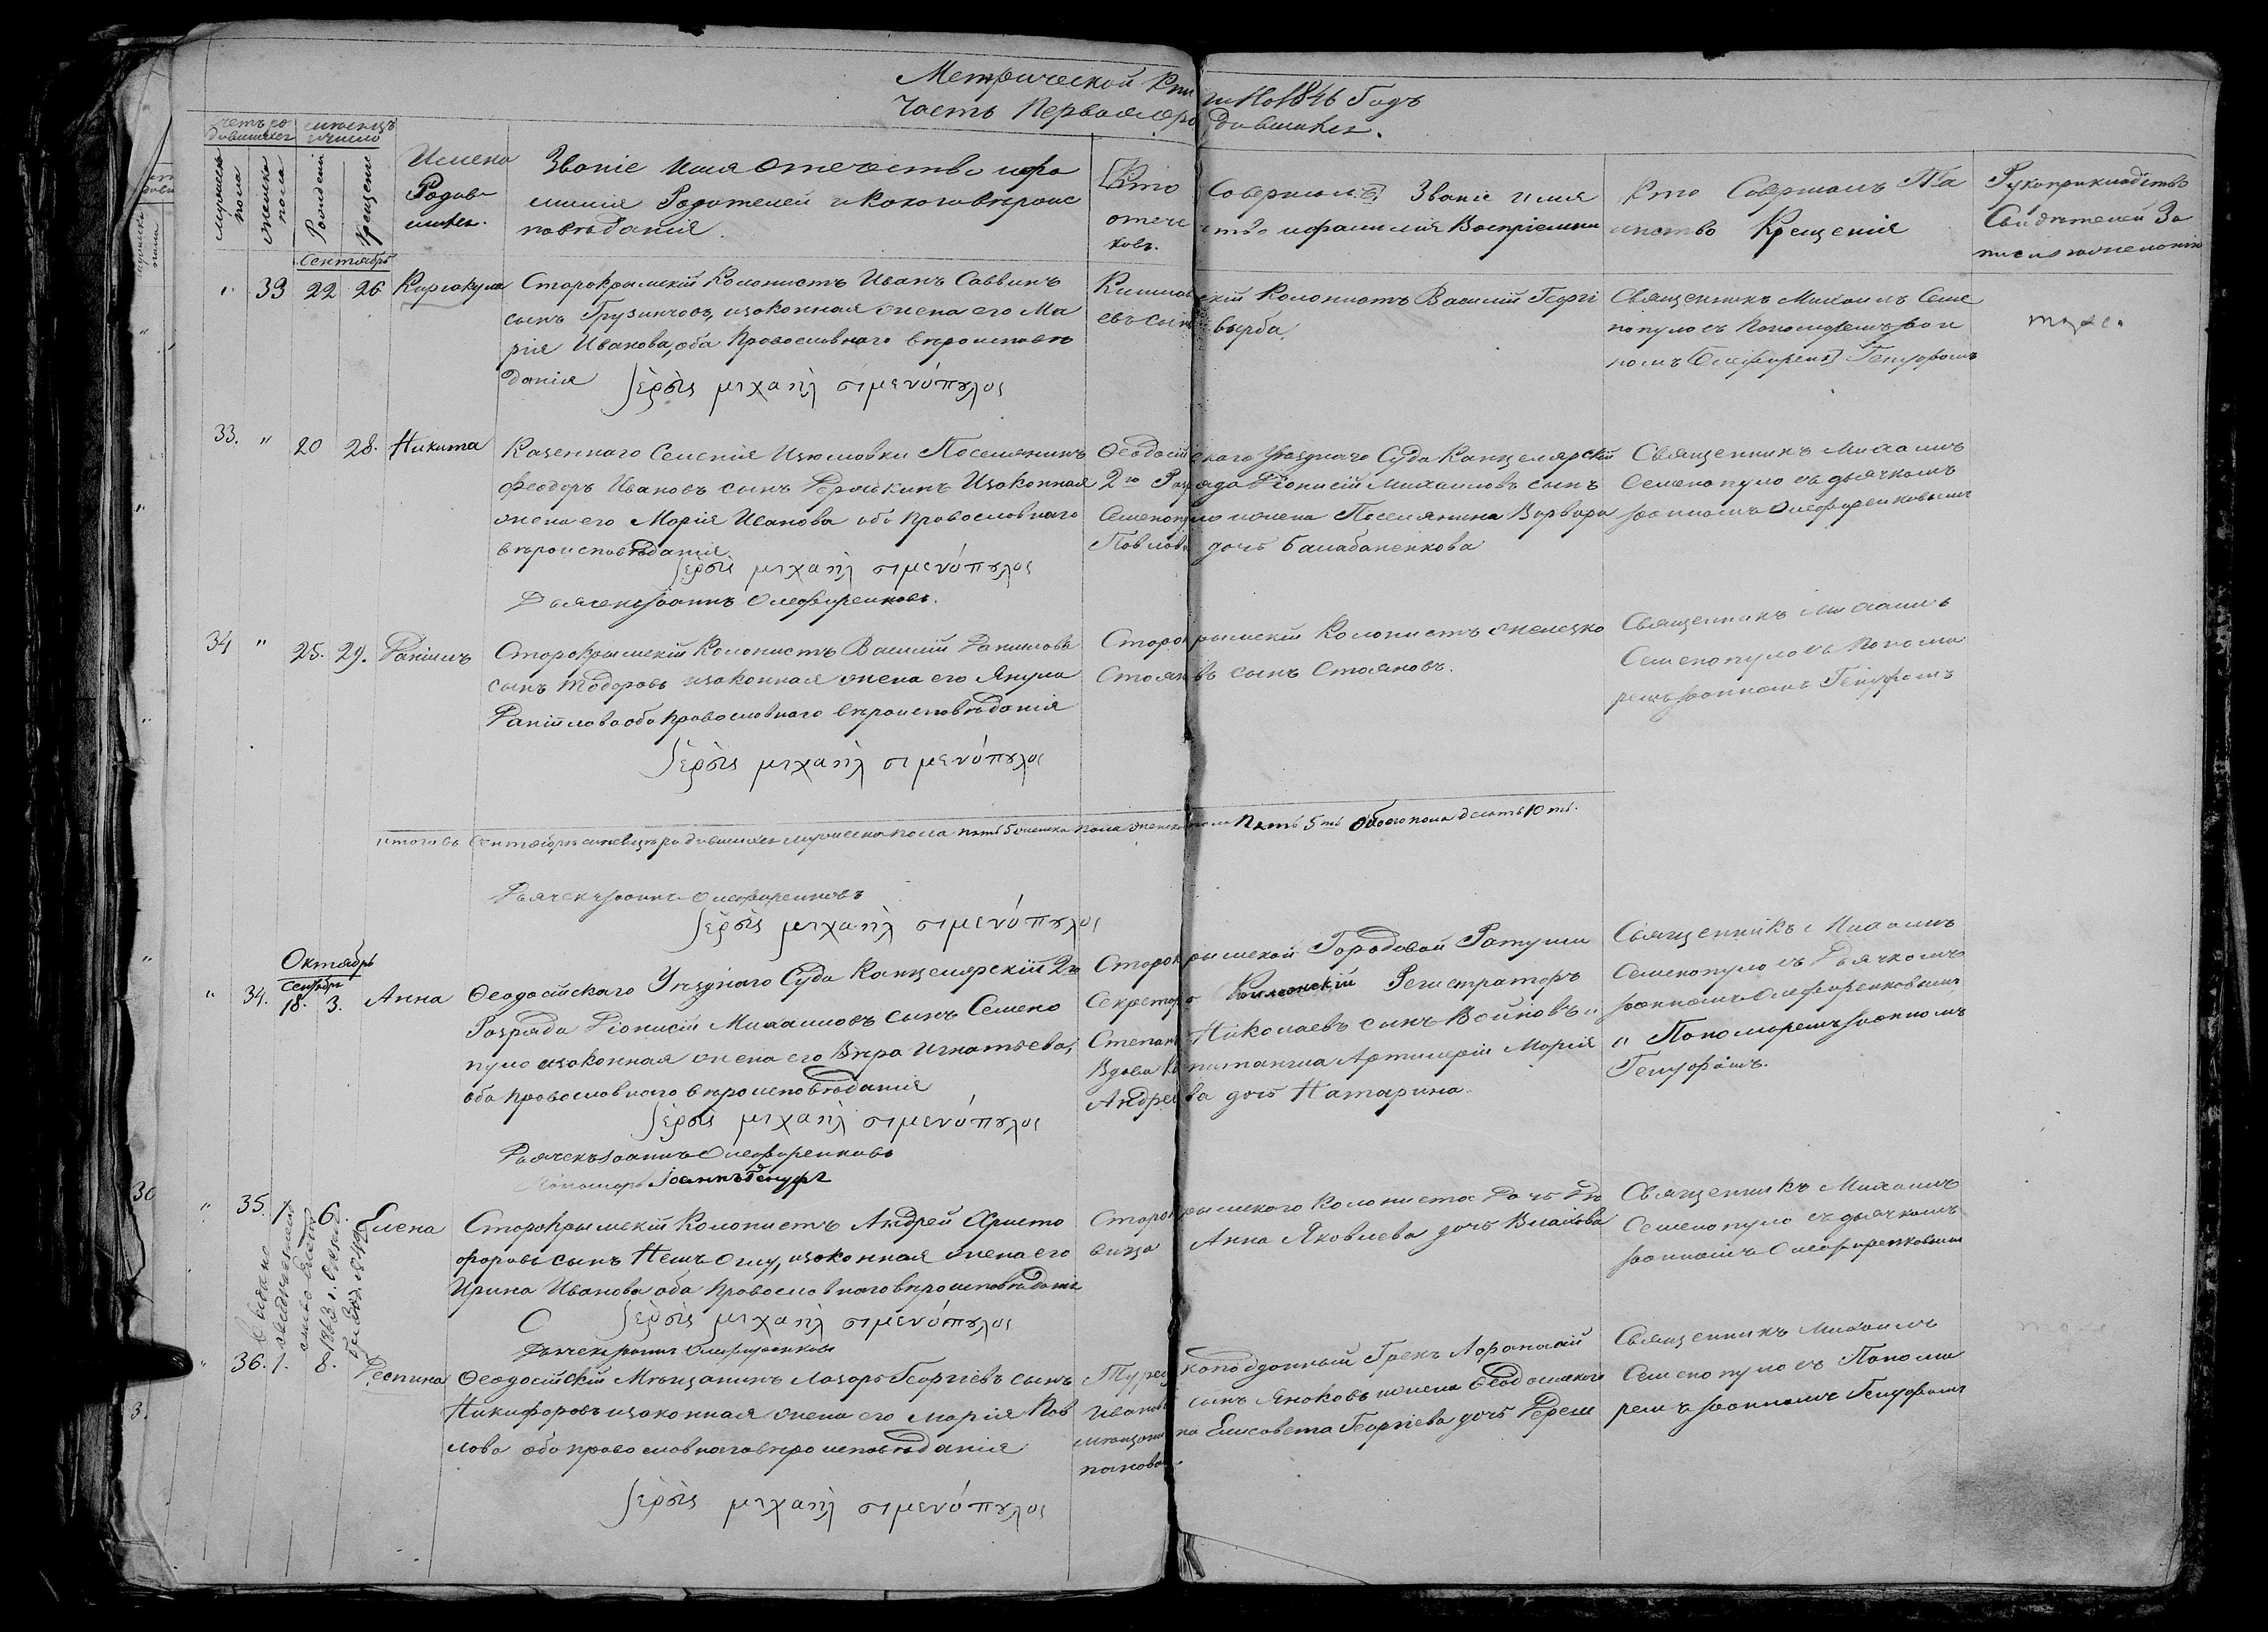 Метрической Книги На 1846 Годъ
Часть Первая о родившихся.
четъ родившихся
мужеска пола
женска пола
месяцъ и число
Рожденія
Крещенія
Имена Родившихся.
Званіе Имя Отечество и фамилія Родителей и Какого вѣроисповѣданія.
Кто Совершалъ Званіе имя отечество и фамилія Воспріемниковъ.
Кто Совершалъ Таинство Крещенія
Рукоприкладство Свидѣтелей Записи по желанію
Сентябрь
" 39 22 26
Старокрымскій Колонистъ Иванъ Саввинъ
сынъ Грузинчовъ, изаконная жена его Ма
рія Иванова, оба Православнаго вероисповѣ
данія
Ἱερεὺς μιχαὴλ σιμενόπȣλος
Кишлавскій Колонистъ Василій Георгі
евъ сынъ вырба.
Священникъ Михаилъ Семе
нопуло съ Пономаремъ Іоан
номъ Генцфомъ
тоже.
33. " 20 28. Никита
Казеннаго Селенія Изюмовки Поселянинъ
Феодоръ Ивановъ сынъ Изаконная
жена его Марія Иванова оба Православнаго
вероисповѣданія
Ἱερεὺς μιχαὴλ σιμενόπȣλος
Дьячекъ Іоаннъ Олефиренковъ.
Феодосійскаго Уѣзднаго Суда Канцелярскій
2го Разряда Діонисій Михаиловъ сынъ
Семенопуло ижена Поселянина Варвара
Павлова дочь Балабаненкова
Священникъ Михаилъ
Семенопуло съ дьячкомъ
Іоанномъ Олефиренковымъ
34 " 25. 29. Даніилъ
Старокрымскій Колонистъ Василій Даниловъ
сынъ Тодоровъ изаконная жена его Янула
Даніилова оба православнаго вероисповѣданія
Ἱερεὺς μιχαὴλ σιμενόπȣλος
Старокрымскій Колонистъ
Стояновъ сынъ Стояновъ.
Священникъ Михаилъ
Семенопуло съ Понома
ремъ Іоанномъ Генцфомъ
итого въ Сентябрѣ месяцѣ родившихся мужеска пола пять 5 женска пола Пять 5ть Обоего пола десять 10ть.
Дьячекъ Іоаннъ Олефиренковъ
Ἱερεὺς μιχαὴλ σιμενόπȣλος
Октябрь
Сентябрь
" 34. 18. 3. Анна
Феодосійскаго Уѣзднаго Суда Канцелярскій 2го
Разряда Діонисій Михаиловъ сынъ Семено
пуло изаконная жена его Вѣра Игнатьева,
оба православнаго вероисповѣданія
Ἱερεὺς μιχαὴλ σιμενόπȣλος
Дьячекъ Іоаннъ Олефиренковъ
Пономарь Іоаннъ Генцфъ
Старокрымской Городовой Ратуши
Секретарь Регистраторъ
Степанъ Николаевъ сынъ Войновъ и
Вдова Капитанша Артилеріи Марія
Андреева дочь Натарина.
Священникъ Михаилъ
Семенопуло съ Дьячкомъ
Іоанномъ Олефиренковымъ
и Пономаремъ Іоанномъ
Генцфомъ.
" 35. 1. 6. Елена
Старокрымскій Колонистъ Андрей Христо
форовъ сынъ изаконная жена его
Ирина Иванова оба православнаго вероисповѣданія
Ἱερεὺς μιχαὴλ σιμενόπȣλος
Дьячекъ Іоаннъ Олефиренковъ
Старокрымскаго Колониста Дочь Дѣ
вица Анна Яковлева дочь Влаихова
Священникъ Михаилъ
Семенопуло съ дьячкомъ
Іоанномъ Олефиренковымъ
" 36. 1. 8. Деспина
Феодосійскій Мѣщанинъ Лазарь Георгіевъ сынъ
Никифоровъ изаконная жена его Марія Пав
лова оба православнаго вероисповѣданія
Ἱερεὺς μιχαὴλ σιμενόπȣλος
Турецкоподданный Грекъ Афанасій
Ивановъ сынъ Яноковъ ижена Феодосійскаго
мѣщанина Елисавета Георгіева дочь
Священникъ Михаилъ
Семенопуло съ Понома
ремъ Іоанномъ Генцфомъ
тоже